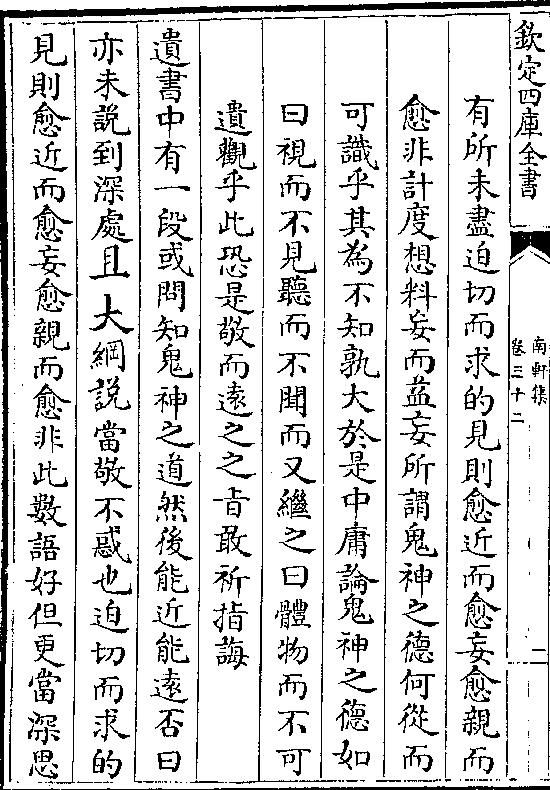 欽定四庫全書
南軒集
卷三十二
二
有所未盡迫切而求的見則愈近而愈妄愈親而
愈非計度想料妄而益妄所謂鬼神之德何從而
可識乎其為不知孰大於是中庸論鬼神之德如
曰視而不見聽而不聞而又繼之曰體物而不可
遺觀乎此恐是敬而遠之之㫖敢祈指誨
遺書中有一段或問知鬼神之道然後能近能遠否曰
亦未說到深處且大綱說當敬不惑也迫切而求的
見則愈近而愈妄愈親而愈非此數語好但更當深思